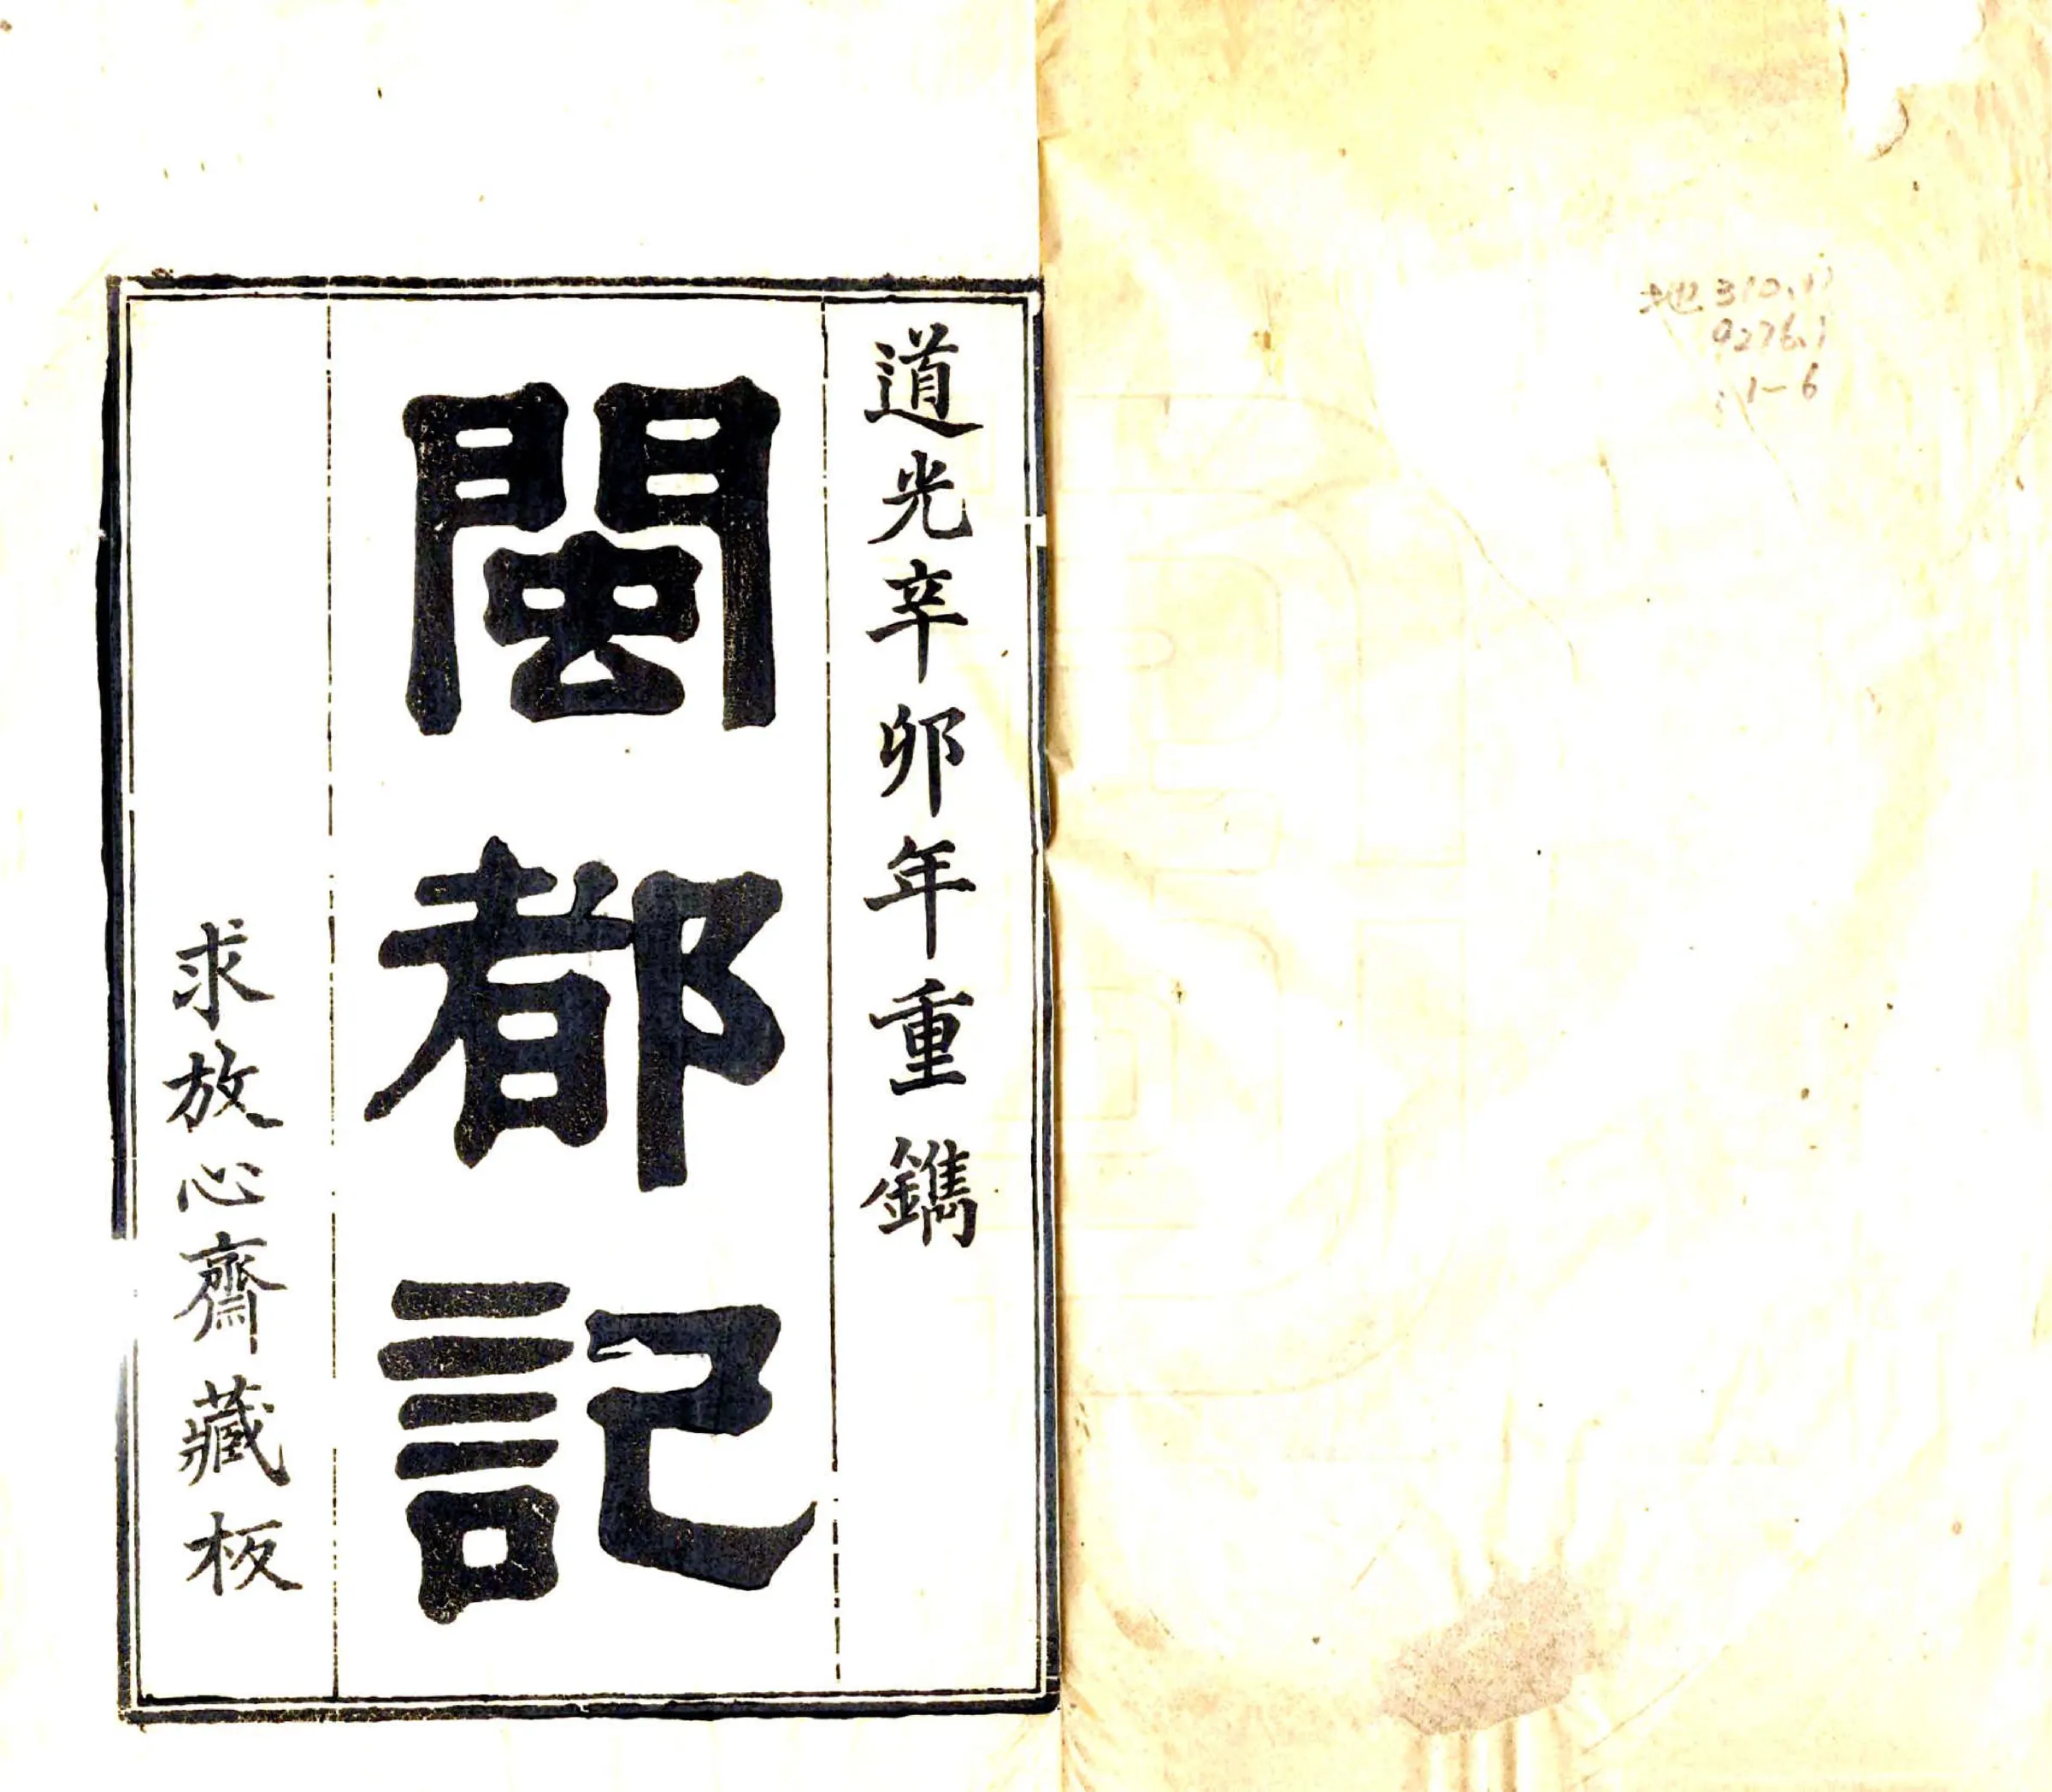 地310.11
0276.1
:1-6
道光辛卯年重鐫
閩都記
求放心齋藏板